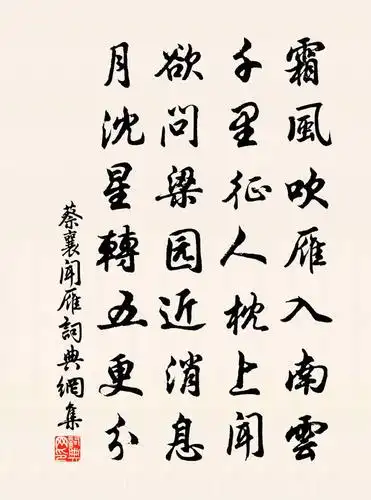 霜風吹雁入南雲
千里征人枕上聞
欲问梁园近消息
月沈星轉五更分
蔡襄聞雁詞典網集